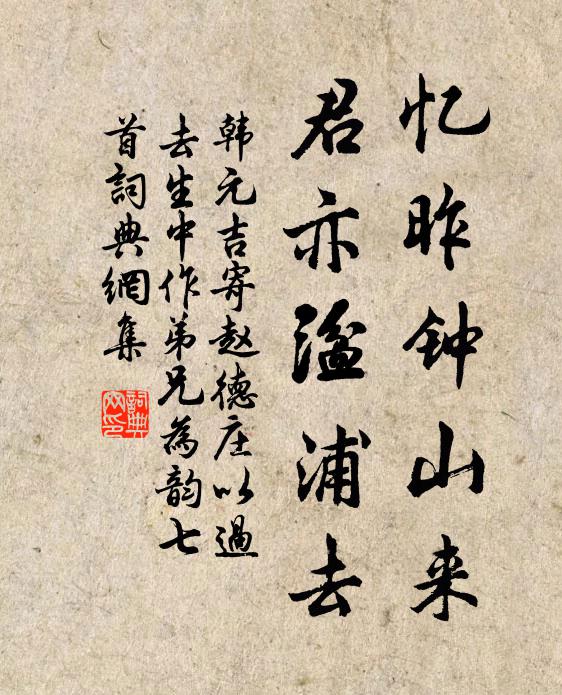 忆昨钟山来
君亦湓浦去
韩元吉寄赵德庄以過
去生中作弟兄為韵七
首詞典網集
詞典
网印